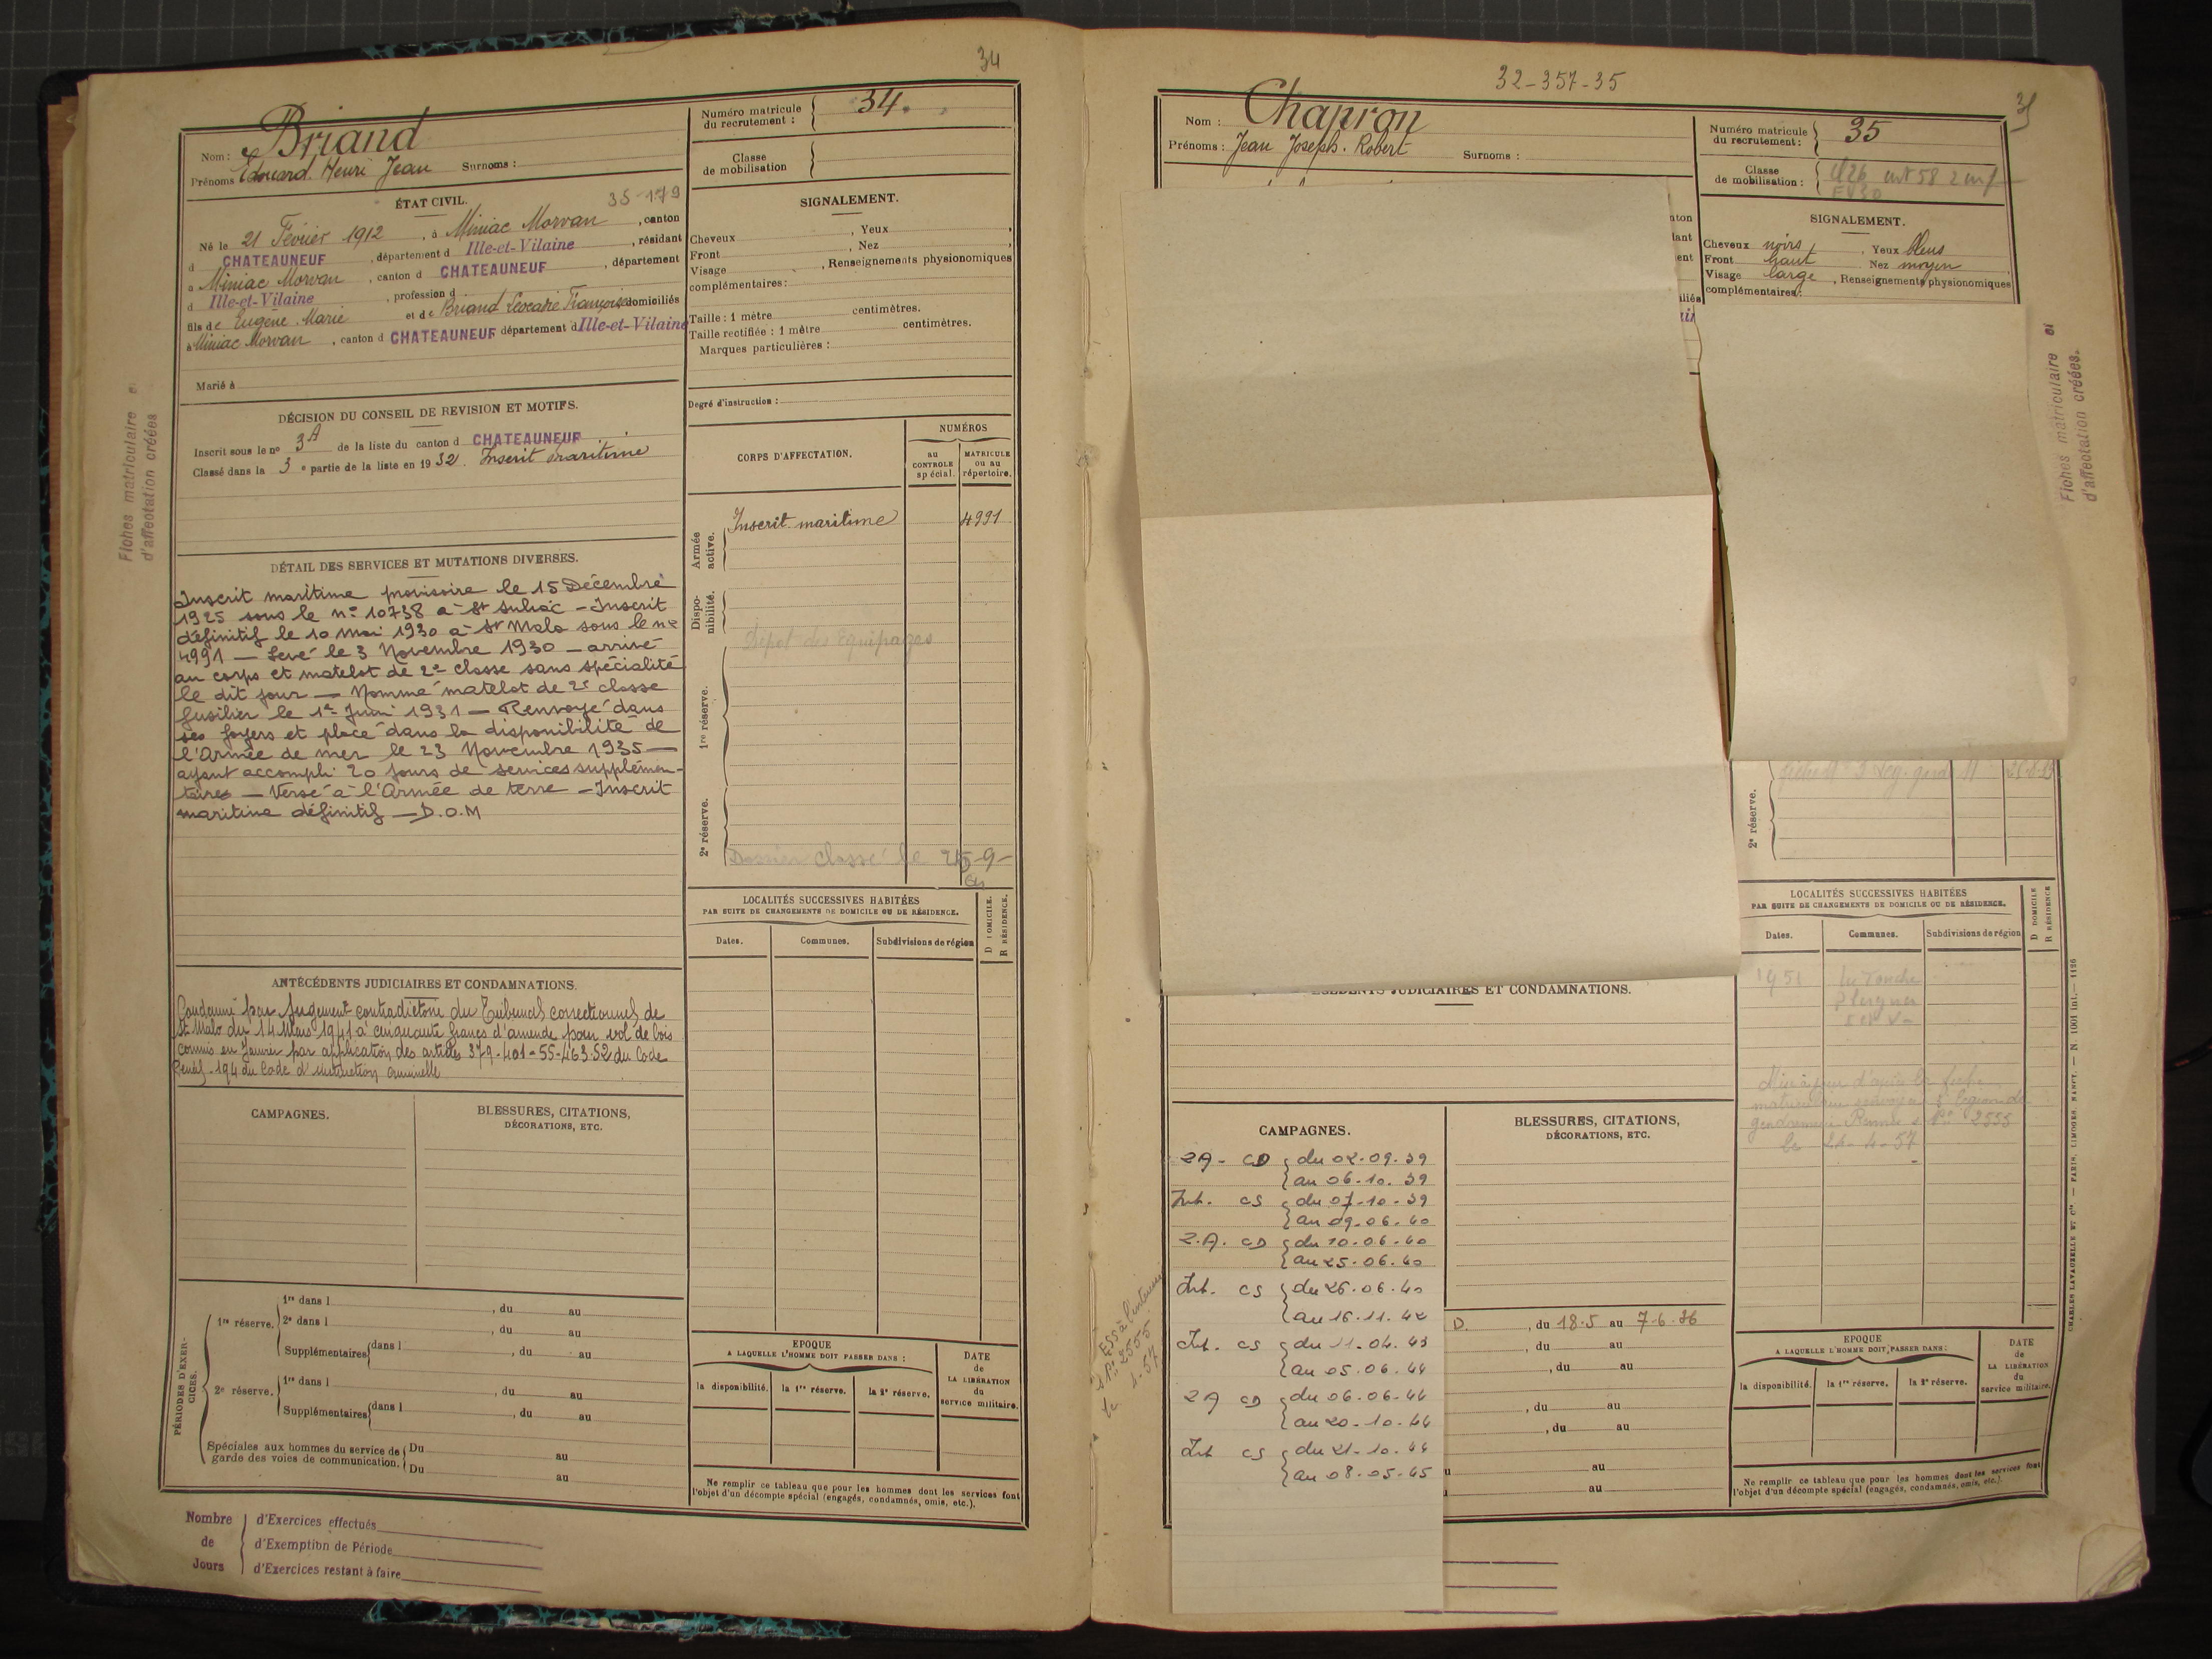 34
Briand
Nom :
Prénoms Edouard Henri Jean Surnoms :
Numéro matricule
du recrutement : 34.
Classe
de mobilisation
35-179
ÉTAT CIVIL.
Né le 21 Février 1912, à Miniac Morvan, canton
d CHATEAUNEUF, département d Ille-et-Vilaine, résidant
à Miniac Morvan, canton d CHATEAUNEUF, département
d Ille-et-Vilaine, profession d
fils de Eugène Marie et de Briand Françoise domiciliés
à Miniac Morvan, canton d CHATEAUNEUF département d Ille-et-Vilaine
Marié à
DÉCISION DU CONSEIL DE REVISION ET MOTIFS.
Inscrit sous le no 3A de la liste du canton d CHATEAUNEUF
Classé dans la 3e partie de la liste en 1932. Inscrit maritime
DÉTAIL DES SERVICES ET MUTATIONS DIVERSES.
Inscrit maritime provisoire le 15 Décembre
1925 sous le no 10738 à St Suliac - Inscrit
définitif le 10 Mai 1930 à St Malo sous le no
4991 — Levé le 3 Novembre 1930 — arrivé
au corps et matelot de 2e classe sans spécialité
le dit jour — Nommé matelot de 2e classe
fusilier le 1er Juin 1931 — Renvoyé dans
ses foyers et placé dans la disponibilité de
l'Armée de mer le 23 Novembre 1935 —
ayant accompli 20 jours de services supplémen-
taires — Versé à l'Armée de terre — Inscrit
maritime définitif — D.O.M
ANTÉCÉDENTS JUDICIAIRES ET CONDAMNATIONS.
Condamné par jugement contradictoire du Tribunal correctionnel de
St Malo du 14 Mars 1941 à cinquante francs d'amende pour vol de bois
commis en Janvier par application des articles 379-401-55-463.52 du Code
Pénal - 194 du Code d'instruction criminelle
CAMPAGNES.
BLESSURES, CITATIONS,
DÉCORATIONS, ETC.
PÉRIODES D'EXER-
CICES.
1re réserve.
1re dans l , du au
2e dans l , du au
Supplémentaires dans l , du au
2e réserve.
1re dans l , du au
Supplémentaires dans l , du au
Spéciales aux hommes du service de
garde des voies de communication.
Du au
Du au
Nombre
de
Jours
d'Exercices effectués
d'Exemption de Période
d'Exercices restant à faire
Fiches matriculaire e
d'affectation créées
SIGNALEMENT.
Cheveux , Yeux ,
Front , Nez ,
Visage , Renseignements physionomiques
complémentaires :
Taille : 1 mètre centimètres.
Taille rectifiée : 1 mètre centimètres.
Marques particulières :
Degré d'instruction :
CORPS D'AFFECTATION.
NUMÉROS
au
CONTROLE
spécial.
MATRICULE
ou au
répertoire.
Armée
active.
Inscrit maritime 4991
Dispo-
nibilité.
Dépôt des Equipages
1re réserve.
2e réserve.
Dossier classé le 25-9-
LOCALITÉS SUCCESSIVES HABITÉES
PAR SUITE DE CHANGEMENTS DE DOMICILE OU DE RÉSIDENCE.
D DOMICILE.
R RÉSIDENCE.
Dates. Communes. Subdivisions de région
EPOQUE
A LAQUELLE L'HOMME DOIT PASSER DANS :
la disponibilité. la 1re réserve. la 2e réserve.
DATE
de
LA LIBÉRATION
du
service militaire.
Ne remplir ce tableau que pour les hommes dont les services font
l'objet d'un décompte spécial (engagés, condamnés, omis, etc.).
32-357-35
35
Nom : Chapron
Prénoms : Jean Joseph. Robert Surnoms :
Numéro matricule
du recrutement : 35
Classe
de mobilisation :
SIGNALEMENT.
Cheveux noirs, Yeux bleus
Front haut Nez moyen
Visage large, Renseignements physionomiques
complémentaires :
Fiches matriculaire et
d'affectation créées.
2e réserve.
LOCALITÉS SUCCESSIVES HABITÉES
PAR SUITE DE CHANGEMENTS DE DOMICILE OU DE RÉSIDENCE.
D DOMICILE
R RÉSIDENCE
Dates. Communes. Subdivisions de région
1951
Mis à jour d'après la
matriculaire légion de
gendarmerie Rennes 2555
le 24-4-57
JUDICIAIRES ET CONDAMNATIONS.
CAMPAGNES.
2A - CD du 02.09.39
au 06.10.39
Int. CS du 07-10-39
au 09.06.40
2.A. CD du 10.06.40
au 25.06.40
Int. CS du 26.06.40
au 16.11.42
Int. CS du 11.04.43
au 05.06.44
2A CD du 06.06.44
au 20-10-44
Int CS du 21-10-44
au 08.05.45
BLESSURES, CITATIONS,
DÉCORATIONS, ETC.
D. , du 18.5 au 7.6.36
, du au
, du au
, du au
, du au
u au
au
EPOQUE
A LAQUELLE L'HOMME DOIT PASSER DANS :
la disponibilité. la 1re réserve. la 2e réserve.
DATE
de
LA LIBÉRATION
du
service militaire.
Ne remplir ce tableau que pour les hommes dont les services font
l'objet d'un décompte spécial (engagés, condamnés, omis, etc.).
CHARLES LAVAUZELLE ET Cie — PARIS, LIMOGES, NANCY.